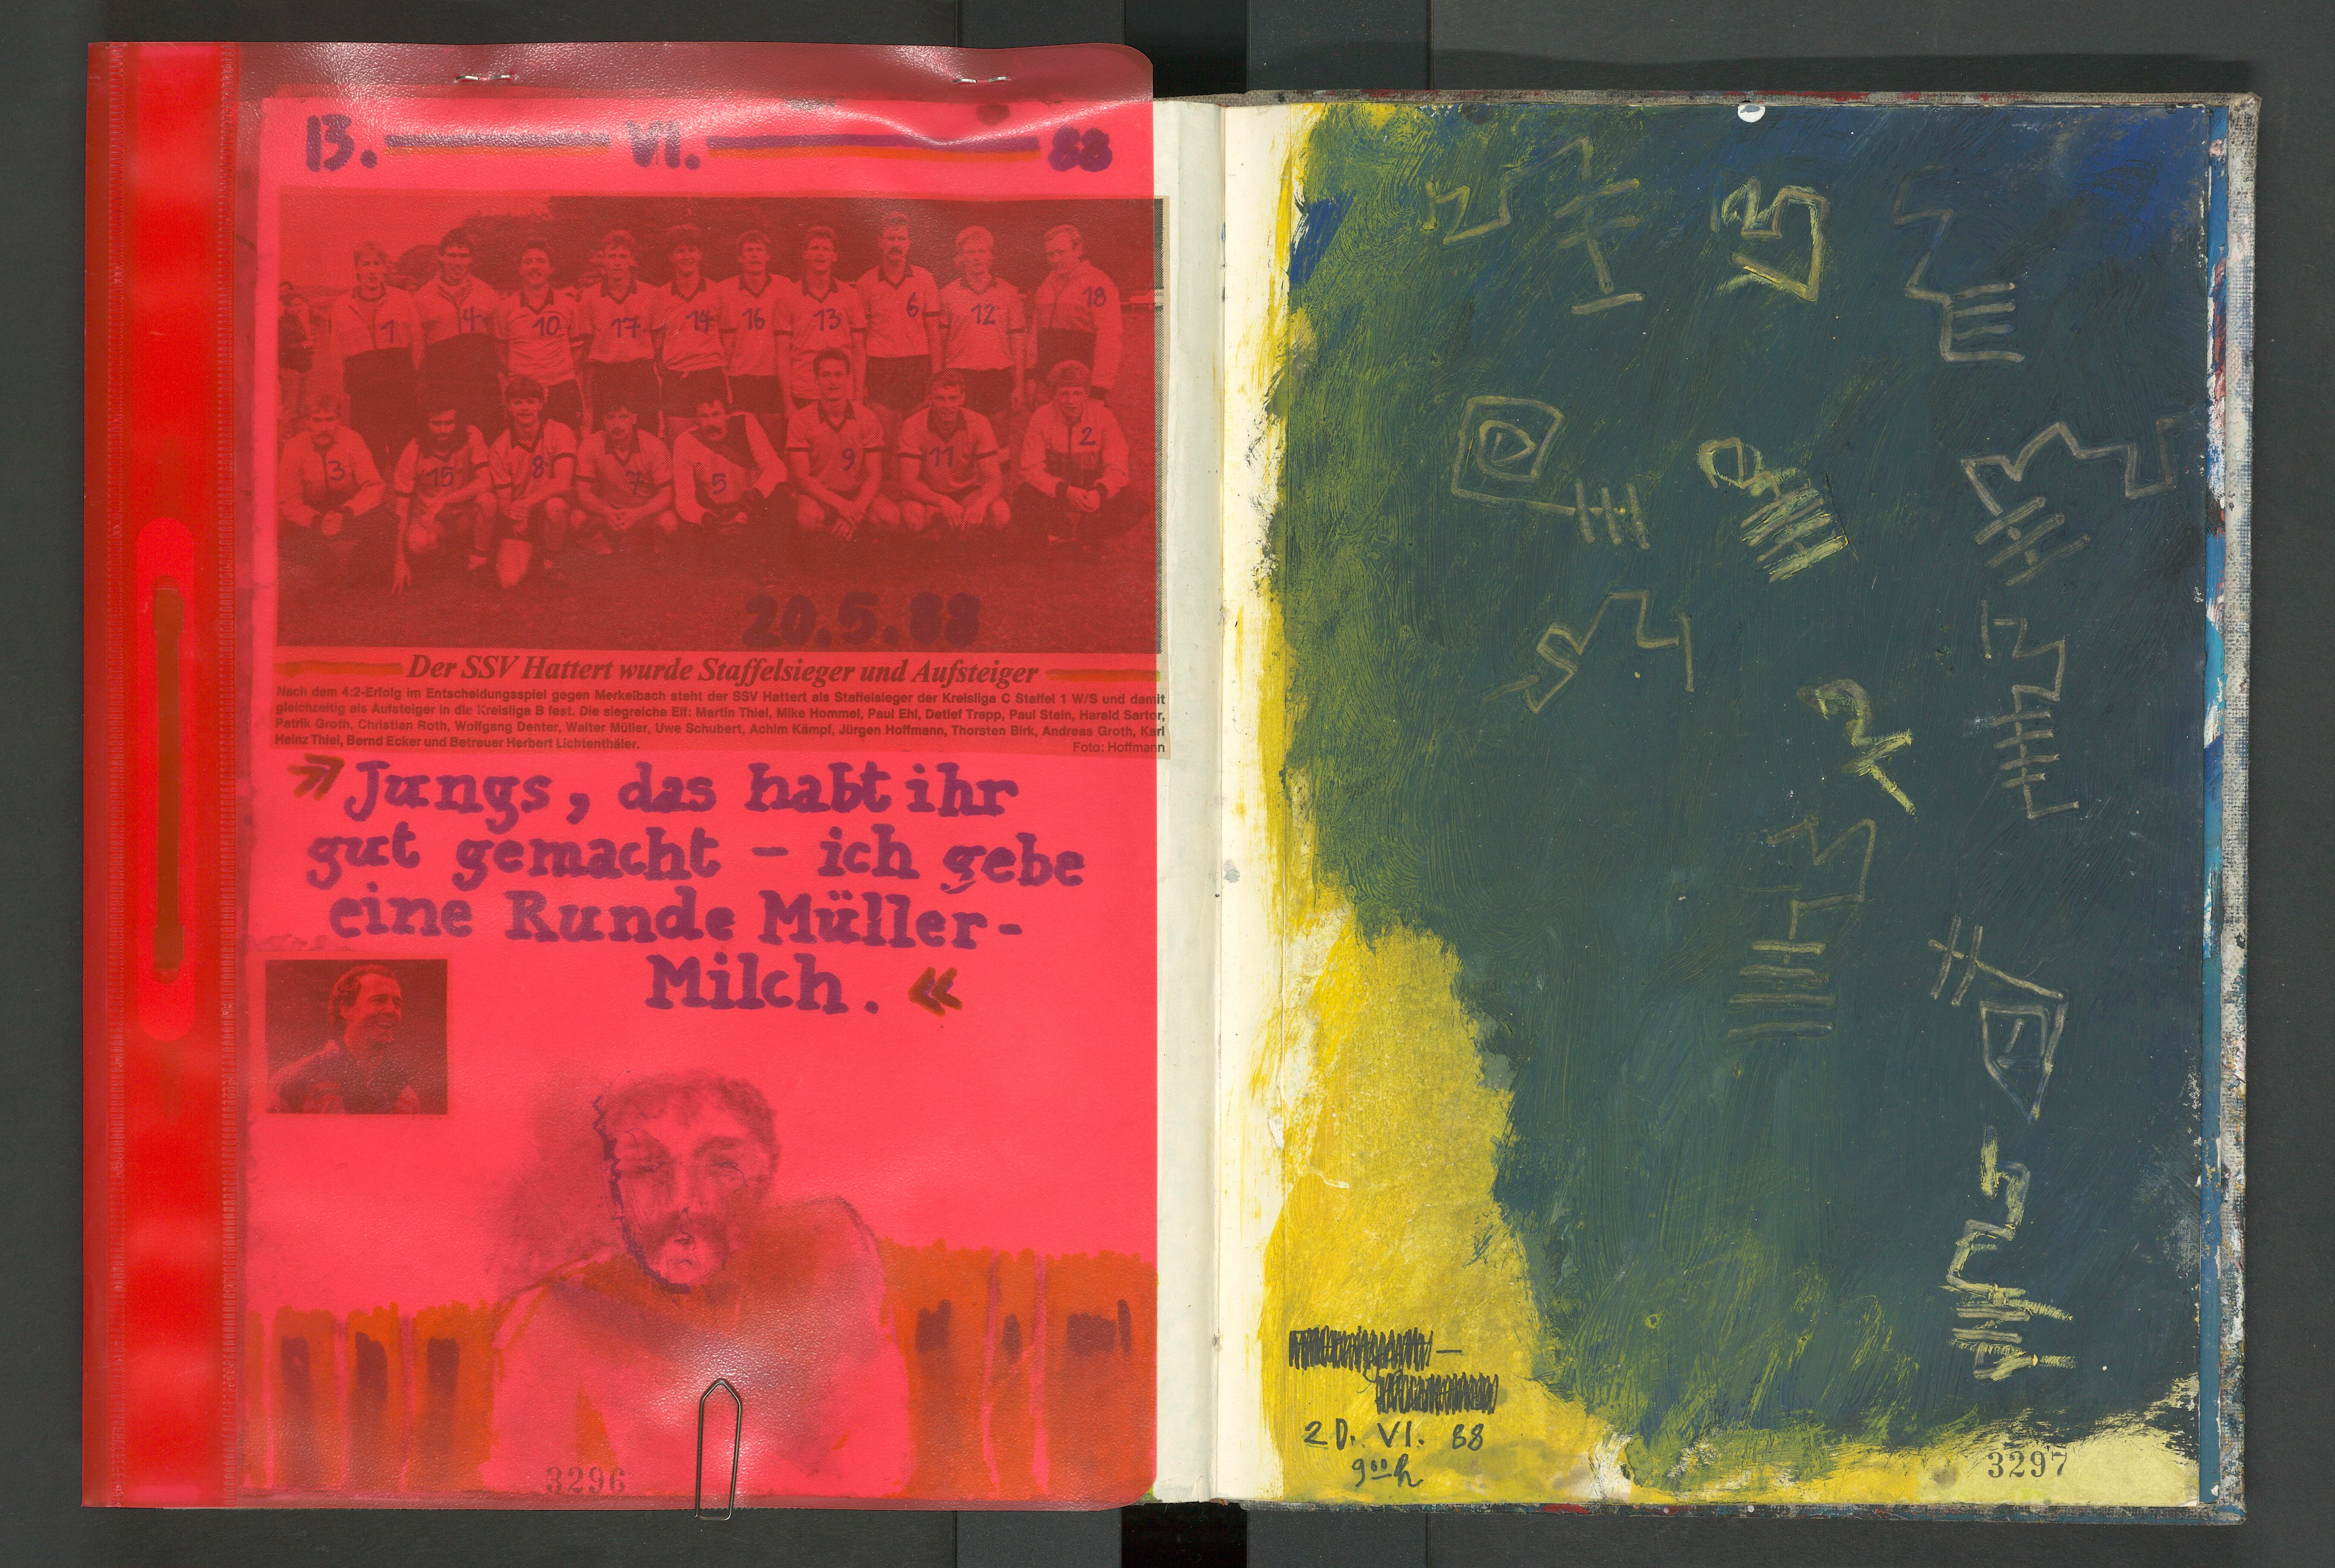 13. VI. 88
1 4 10 17 14 16 13 6 12 18
3 15 8 7 5 9 11 2
20.5.88
Der SSV Hattert wurde Staffelsieger und Aufsteiger
Nach dem 4:2-Erfolg im Entscheidungsspiel gegen Merkelbach steht der SSV Hattert als Staffelsieger der Kreisliga C Staffel 1 W/S und damit
gleichzeitig als Aufsteiger in die Kreisliga B fest. Die siegreiche Elf: Martin Thiel, Mike Hommel, Paul Ehl, Detlef Trapp, Paul Stein, Harald Sartor,
Patrik Groth, Christian Roth, Wolfgang Denter, Walter Müller, Uwe Schubert, Achim Kämpf, Jürgen Hoffmann, Thorsten Birk, Andreas Groth, Karl
Heinz Thiel, Bernd Ecker und Betreuer Herbert Lichtenthäler. Foto: Hoffmann
»Jungs, das habt ihr
gut gemacht – ich gebe
eine Runde Müller-
Milch.«
3296
20. VI. 88
9⁰⁰h
3297